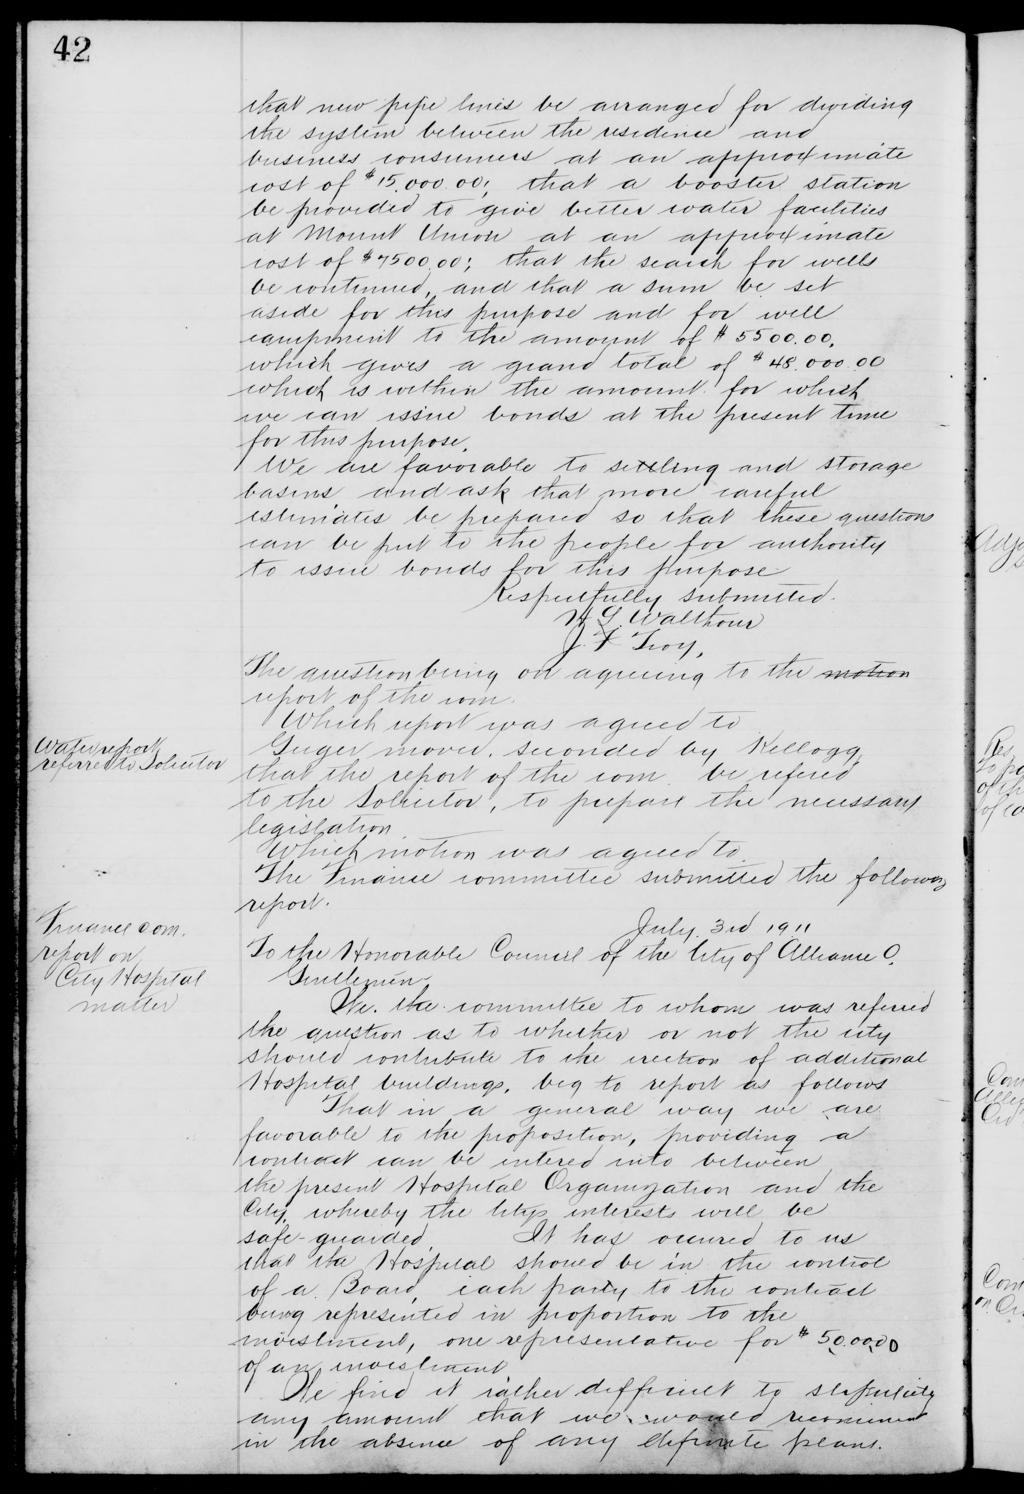 42
that new pipe lines be arranged for dividing
the system between the residence and
business consumers at an approximate
cost of $15,000.00; that a booster station
be provided to give better water facilities
at Mount Union at an approximate
cost of $7500.00; that the search for wells
be continued, and that a sum be set
aside for this purpose and for well
equipment to the amount of $5500.00,
which gives a grand total of $48.000.00
which is within the amount for which
we can issue bonds at the present time
for this purpose.
We are favorable to settling and storage
basins and ask that more careful
estimates be prepared so that these questions
can be put to the people for authority
to issue bonds for this purpose
Respectfully submitted.
H G Walthour
J. F Troy,
The question being on agreeing to the motion
report of the com.
Which report was agreed to
Water report
referred to Solicitor
Geiger moved, seconded by Kellogg,
that the report of the com be refered
to the Solicitor, to prepare the necessary
legislation
Which motion was agreed to.
The Finance committee submitted the following
report.
Finance com.
report on
City Hospital
matter
July, 3rd 1911
To the Honorable Council of the City of Alliance O.
Gentlemen,
We, the committee to whom was referred
the question as to whether or not the city
should contribute to the erection of additional
Hospital buildings, beg to report as follows
That in a general way we are
favorable to the proposition, providing a
contract can be entered into between
the present Hospital Organization and the
City, whereby the Citys interests will be
safe-guarded. It has occured to us
that the Hospital should be in the control
of a Board, each party to the contract
being represented in proportion to the
investment, one representative for $50,00,00
of an investment
We find it rather difficult to
any amount that we would recommend
in the absence of any definite plans.
Adjo
Res
to pa
of th
of co
Com
Alle
Ord
Com
on Or